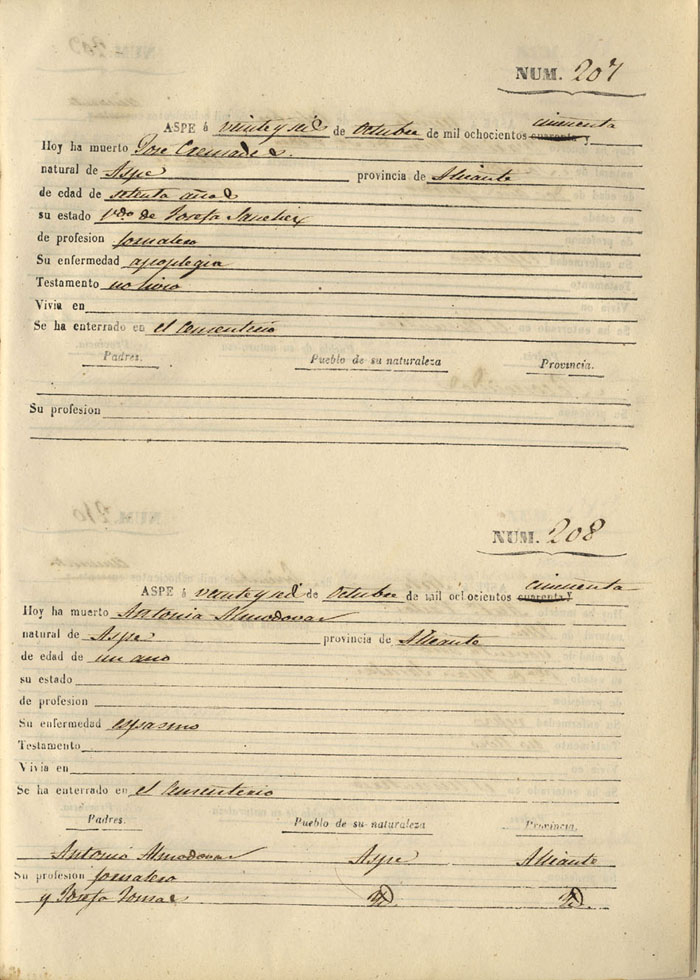 NUM. 207
cincuenta
ASPE á veinte y seis de Octubre de mil ochocientos cuarenta y
Hoy ha muerto Jose Cremades.
natural de Aspe provincia de Alicante
de edad de setenta años
su estado Vdo de Josefa Sanchez
de profesion Jornalero
Su enfermedad apoplegia
Testamento no hizo
Vivia en
Se ha enterrado en el Cementerio
Padres. Pueblo de su naturaleza Provincia.
Su profesion
NUM. 208
cincuenta
ASPE á veinte y seis de Octubre de mil ochocientos cuarenta y
Hoy ha muerto Antonia Almodovar
natural de Aspe provincia de Alicante
de edad de un año
su estado
de profesion
Su enfermedad espasmo
Testamento
Vivia en
Se ha enterrado en el Cementerio
Padres. Pueblo de su naturaleza Provincia.
Antonio Almodovar Aspe Alicante
Su profesion Jornalero
y Josefa Tomas Id Id.